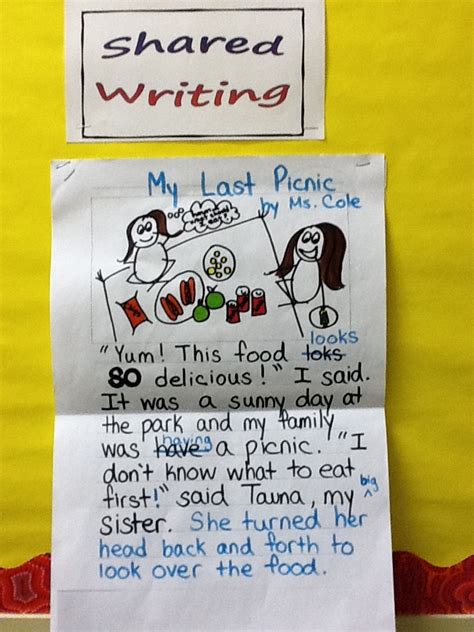 Shared
Writing
My Last Picnic
by Ms. Cole
looks
"Yum! This food toks
SO delicious!" I said.
It was a sunny day at
the park and my family
having
was have a picnic. "I
don't know what to eat
big
first!" said Tauna, my
sister. She turned her
head back and forth to
look over the food.